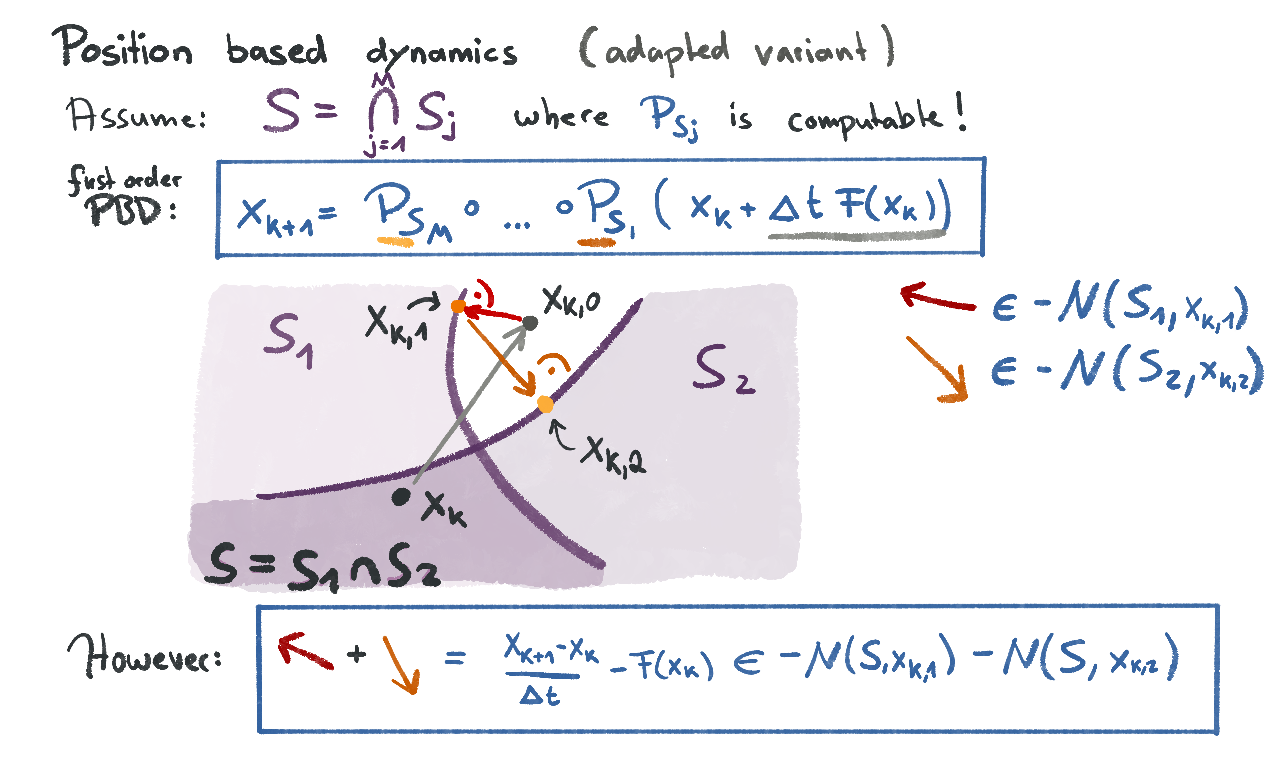 Position based dynamics (adapted variant)
Assume: S = ⋂_{j=1}^{M} S_j where P_{S_j} is computable!
first order
PBD: x_{k+1} = P_{S_M} ∘ ... ∘ P_{S_1} ( x_k + Δt F(x_k))
x_{k,0}
x_{k,1}
S_1
S_2
x_{k,2}
x_k
S = S_1 ∩ S_2
∈ -N(S_1, x_{k,1})
∈ -N(S_2, x_{k,2})
However: + = \frac{x_{k+1} - x_k}{Δt} - F(x_k) ∈ -N(S, x_{k,1}) - N(S, x_{k,2})